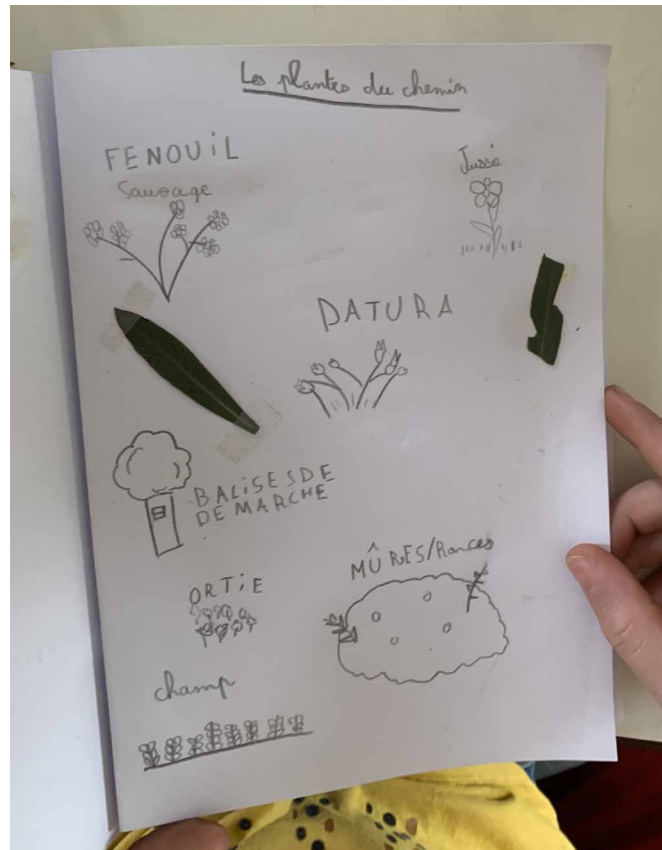 Les plantes du chemin
FENOUiL
Sauvage
Jussie
DATURA
BALiSES DE
DE MARCHE
ORTiE
MÛRES/Ronces
champ